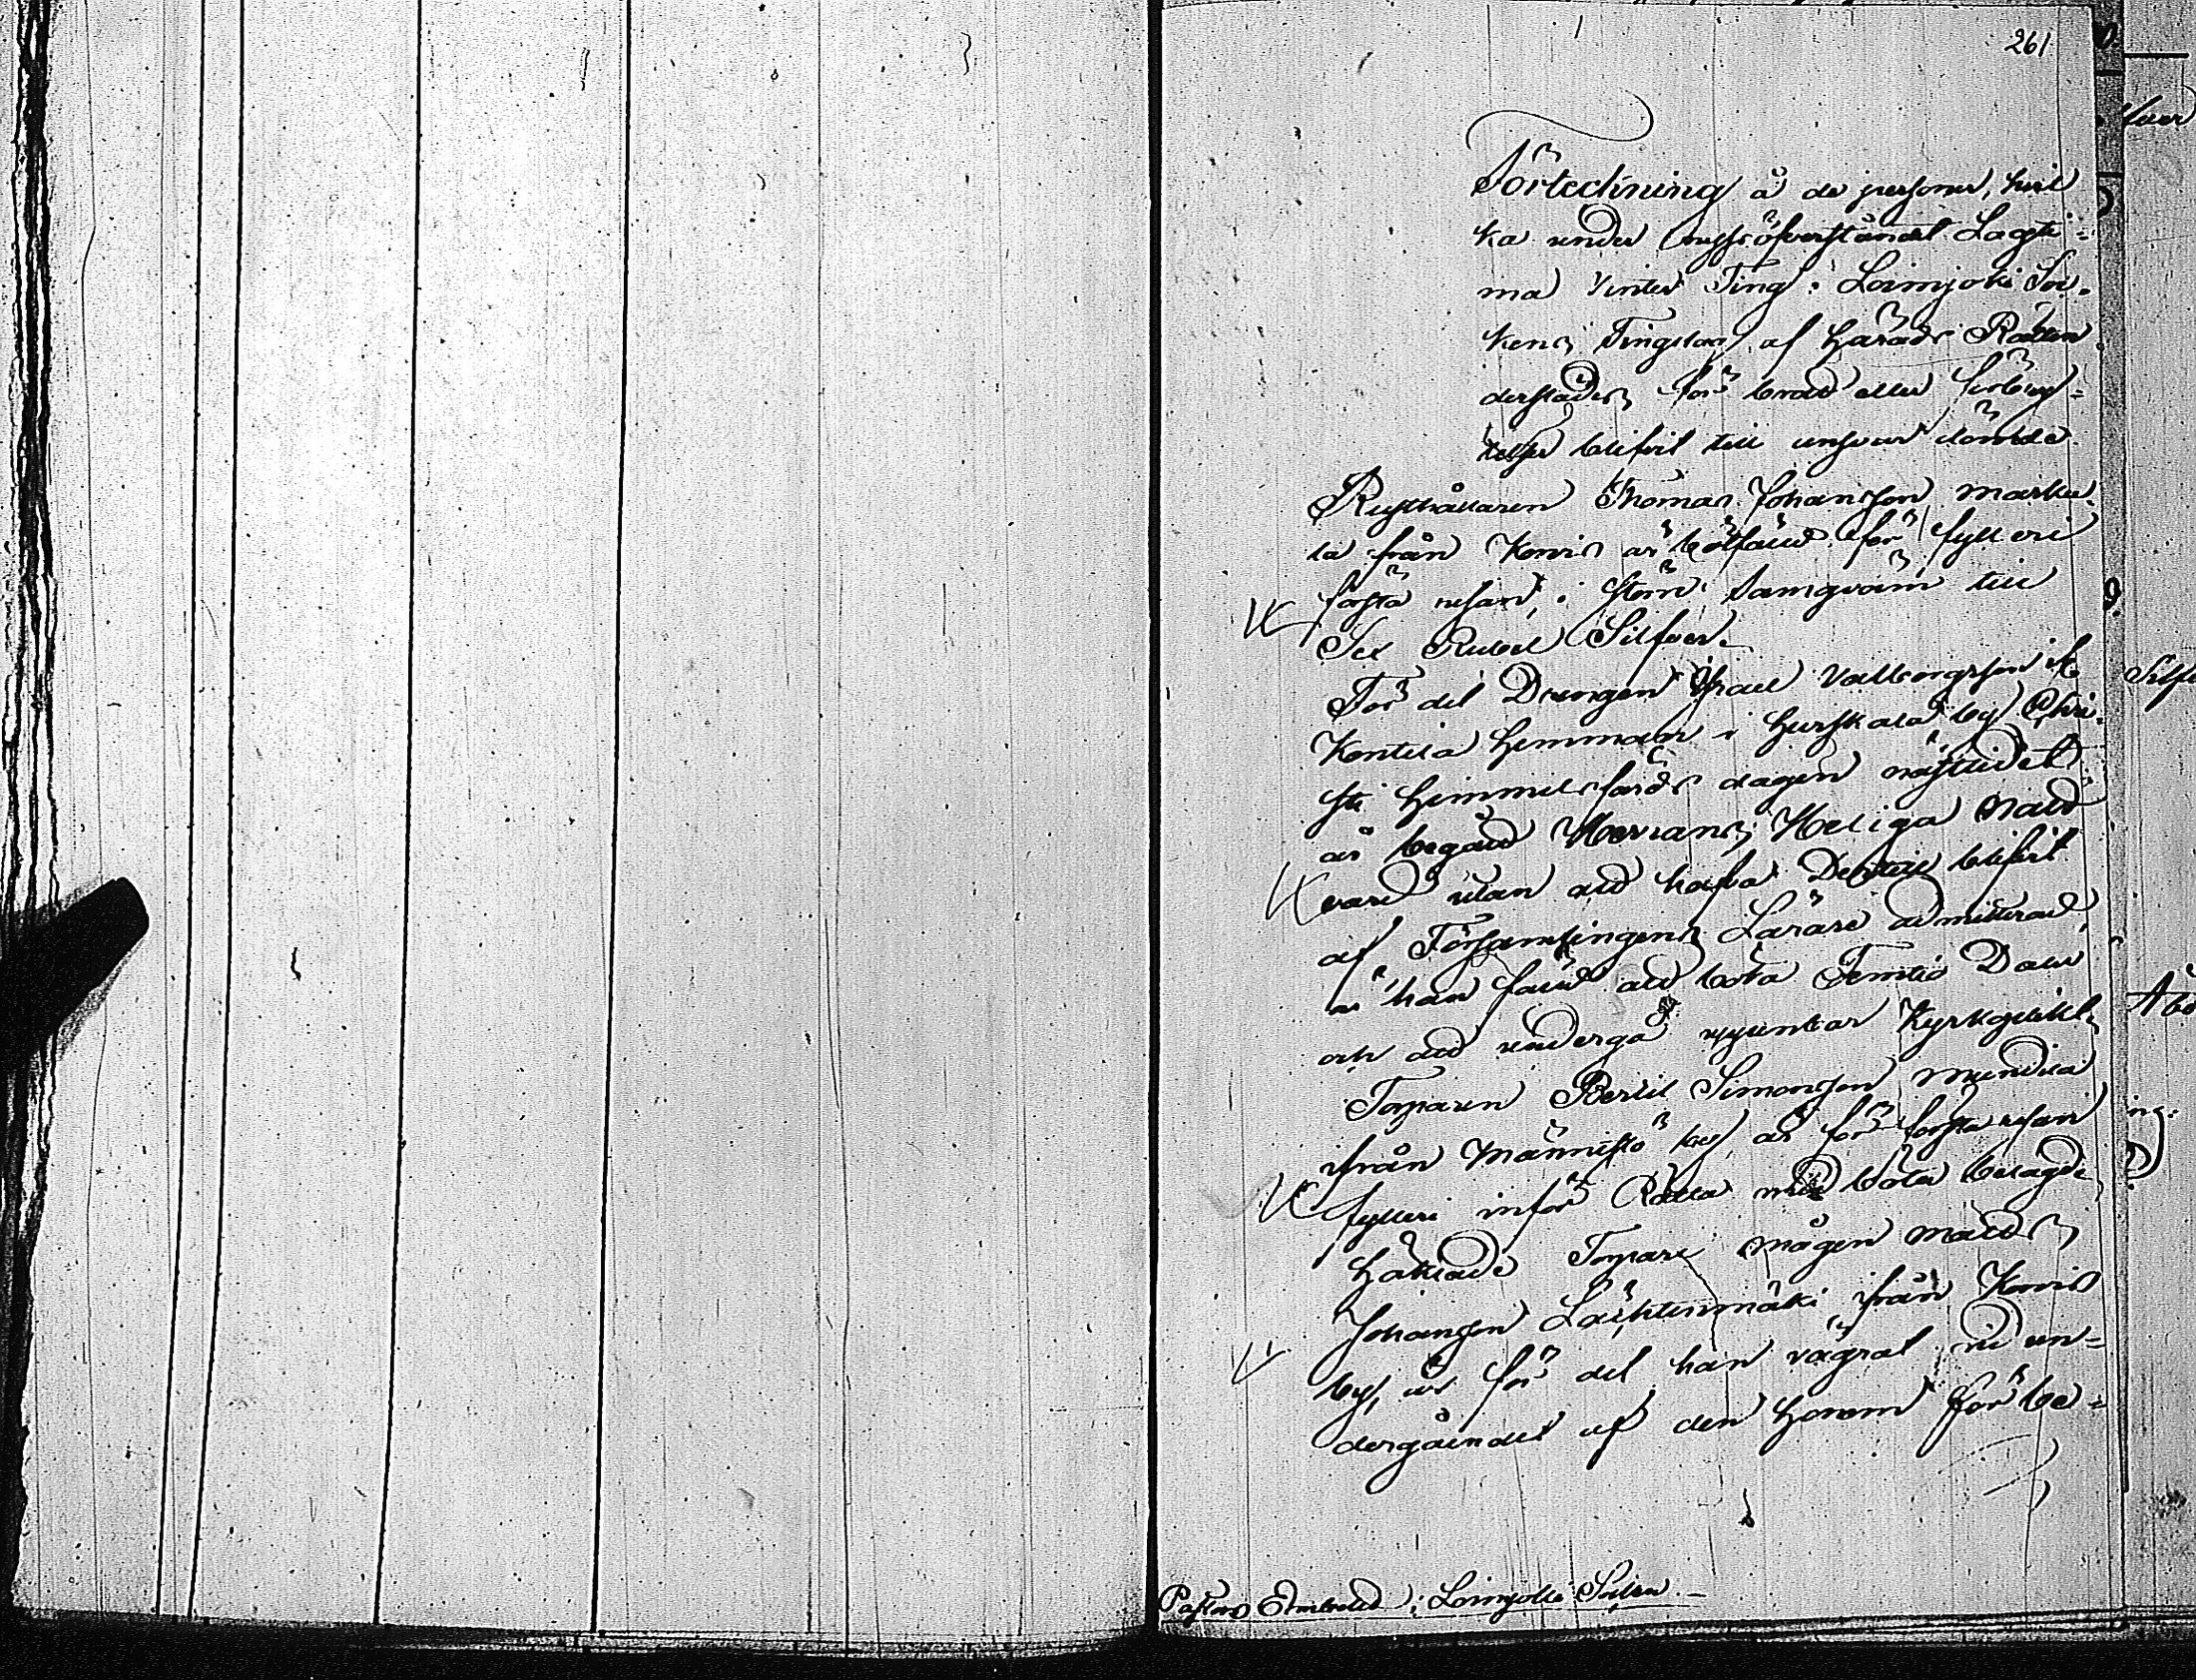 261
Förteckning å de personer, hvil
ka under nyssöfverståndet Lagti=
ma Vinter Ting i Loimjoki Soc.
kens Tingslag af Härads Rätten
derstädes för brott eller förbry=
telser blifvit till ansvar dömde
Rusthållaren Thomas Johansson Marku
la från Kovis är bötfäld för fylleri
första resan, i större samqväm till
Sex Rubel Silfver.
För det Drängen Israel Valborgsson ifr
Kontila hemman i Hurskala by Chri
sti Himmelsfärds dagen nästledit
år begådt Herrans Heliga Natt
vard utan att hafva Dertill blifvit
af Församlingens Lärare admitterad,
är han fäld att böta Femtio Daler
och att undergå uppenbar Kyrkoplikt
Torparen Bertil Simonsson Mundila
ifrån Männistö by, är för första resan
fylleri inför Rätta med böter belagd
Häktade Torpare mågen Matts
Johansson Lähtenmäki ifrån Kovis
by, är för det han vägrat vid un=
dergåendet af den honom för be=
Pastors Embetet i Loimjoki Socken.
Silf
Åbo